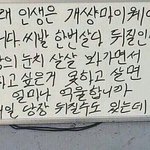 래 인생은 개샹마이웨이
나다 씨발 한번살다 뒈질인
의 눈치 살살 봐가면서
하고 싶은거 못하고 살면
얼마나 억울합니까
일 당장 뒈질수도 있는데